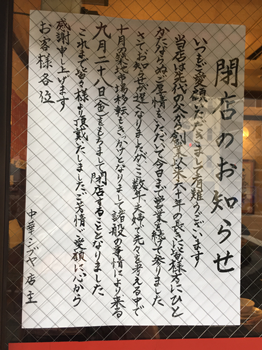 閉店のお知らせ
いつもご愛顧いただきまして有難うございます
当店は先代の父が創業以来六十年の長きに渡り皆様方にひと
かたならぬご厚情をいただいて今日まで営業を続けて参りました
さてお知らせが遅くなりましたがここ数年夫婦で先々を考える中で
十月の築地市場移転をきっかけとなりまして諸般の事情により来る
九月二十八日(金)をもちまして閉店することとなりました
これまで皆々様より頂戴いたしましたご芳情、ご愛顧に心から
感謝申し上げます
お客様各位
中華シブヤ 店主